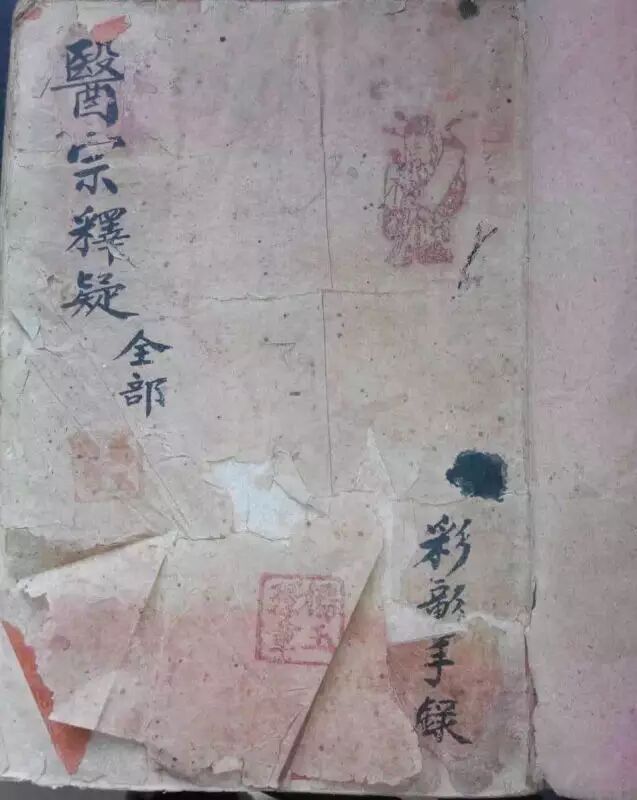 醫宗釋疑
全部
彩歌手錄